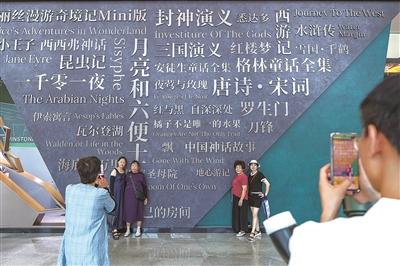 丽丝漫游奇境记Mini版
封神演义
悉达多
西游记
Journey To The West
Alice's Adventures in Wonderland
Investiture Of The Gods
水浒传
Water Margin
小王子
西西弗神话
Sisyphe
月亮和六便士
三国演义
红楼梦
雪国·千鹤
Jane Eyre
昆虫记
安徒生童话全集
格林童话全集
一千零一夜
夜莺与玫瑰
唐诗·宋词
The Arabian Nights
红与黑
自深深处
罗生门
伊索寓言
Aesop's Fables
橘子不是唯一的水果
月锋
瓦尔登湖
Oranges Are Not The Only Fruit
Walden or Life in the Woods
飘
中国神话故事
Gone With The Wind
海底
圣母院
地心游记
A Room Of One's Own
己的房间